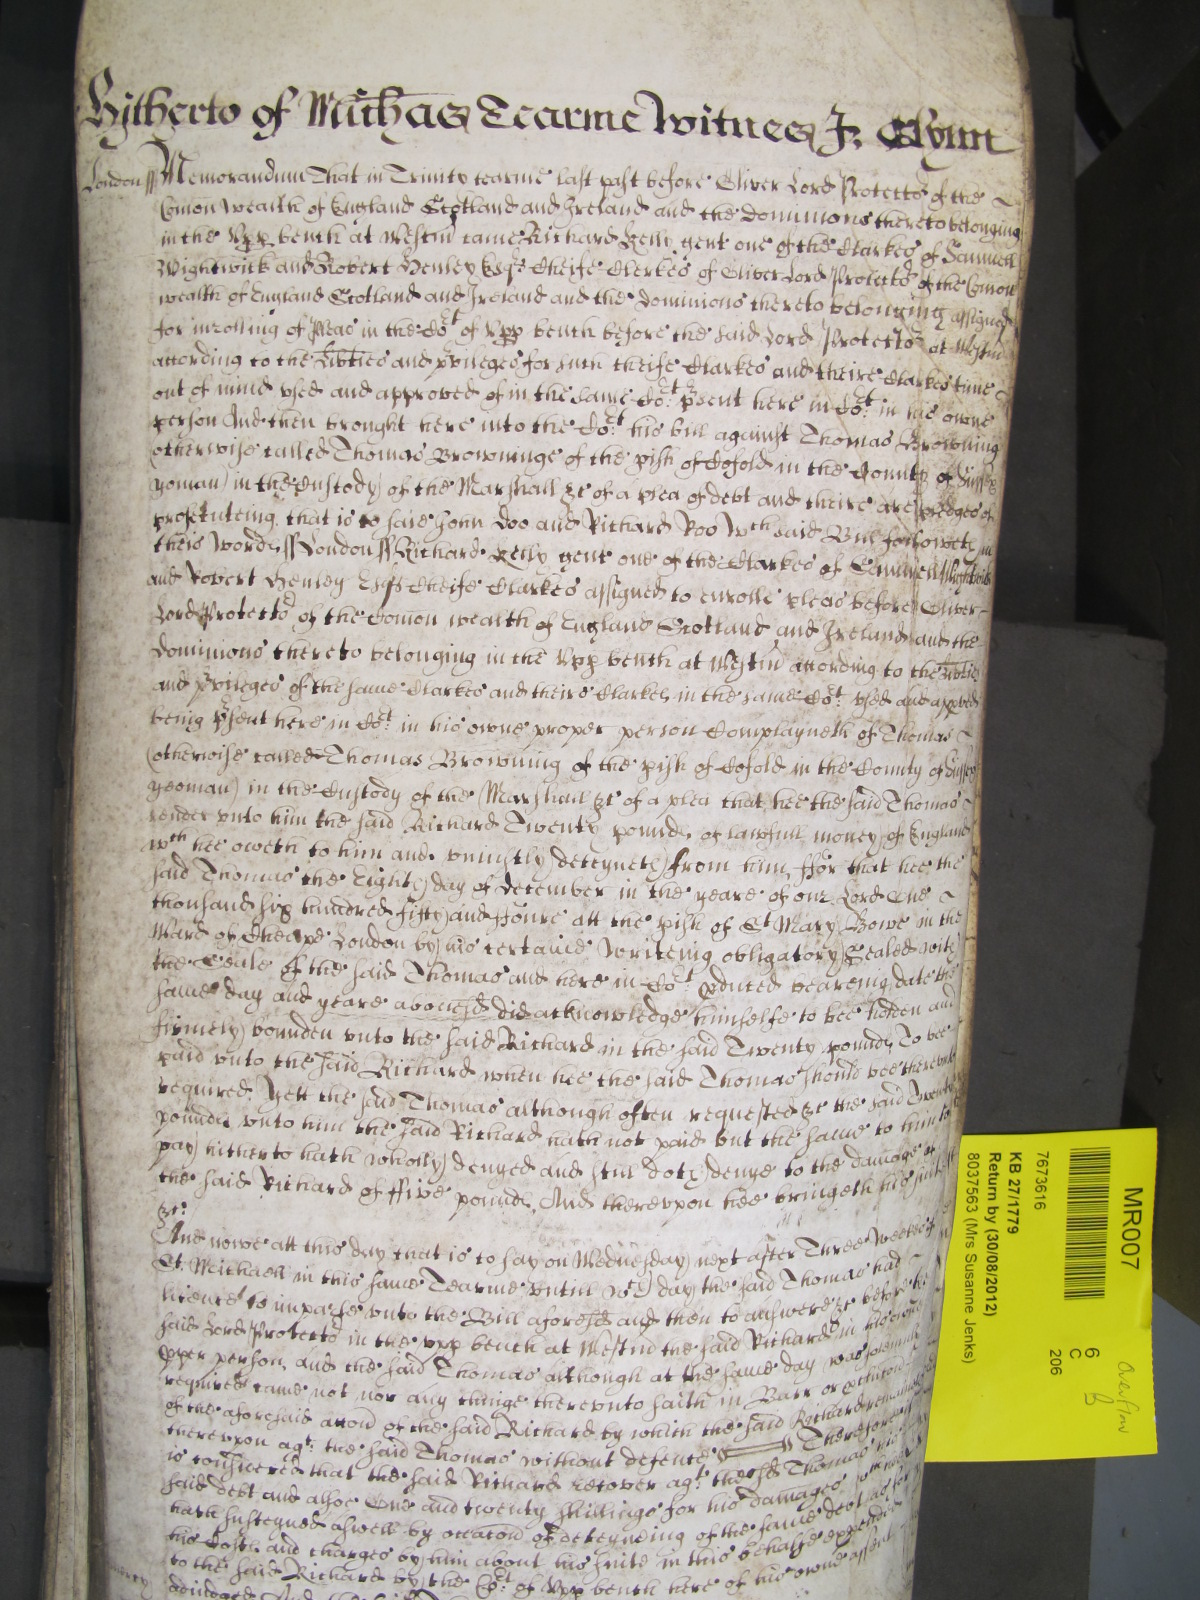 Hitherto of Michas Tearme Witnes J. Glynn
London ss Memorandum That in Trinity tearme last past before Oliver Lord Protector of the
Comon wealth of England Scotland and Ireland and the dominions thereto belonging
in the Upp bench at Westm came Richard Kelly gent one of the Clarkes of Samuell
Wightwick and Robert Henley Esqrs Cheife Clerkes of Oliver Lord Protector of the Comon
wealth of England Scotland and Ireland and the dominions thereto belonging assigned
for inrolling of Pleas in the Cort of Upp bench before the said Lord Protector at Westm
according to the Libties and pviledges for such cheife Clarkes and theire Clarkes time
out of mind vsed and approved of in the same Cort psent here in Cort in his owne
person And then brought here into the Cort his bill against Thomas Browning
(otherwise called Thomas Browninge of the pish of Cofold in the County of Sussex
yoman) in the Custody of the Marshall &c of a plea of debt and theire are pledges of
prosecuteing, that is to saie John Doo and Richard Roo Wch said Bill followeth in
theis words ss London ss Richard Kelly gent one of the Clarkes of Samuell Wightwick
and Robert Henley Esqrs Cheife Clarkes assigned to enrolle pleas before Oliver
Lord Protector of the Comon wealth of England Scotland and Ireland and the
dominions thereto belonging in the Upp bench at Westm according to the libties
and pvileges of the same Clarkes and theire Clarkes in the same Cort vsed and appved
being psent here in Cort in his owne proper person Complayneth of Thomas
(otherwise called Thomas Browning of the pish of Cofold in the County of Sussex
yeoman) in the Custody of the Marshall &c of a plea that hee the said Thomas
render vnto him the said Richard Twenty pounds of lawfull money of England
wch hee oweth to him and vniustly deteyneth from him, ffor that hee the
said Thomas the Eighth day of December in the yeare of our Lord One
thousand six hundred fifty and ffoure att the pish of St Mary Bowe in the
Ward of Cheape London by his certaine writeing obligatory Sealed with
the Seale of the said Thomas and here in Cort pduced beareing date the
same day and yeare abovesd did acknowledge himselfe to bee holden and
firmely bounden vnto the said Richard in the said Twenty pounds To bee
paid vnto the said Richard when hee the said Thomas should bee therevnto
required. Yett the said Thomas although often requested &c the said Twenty
pounds vnto him the said Richard hath not paid but the same to him to
pay hitherto hath wholly denyed and still doth denye to the damage of
the said Richard of ffive pounds, And therevpon hee bringeth his suit
&c.
And nowe att this day that is to say on Wednesday next after Three Weekes of
St. Michaell in this same Tearme vntill wch day the said Thomas had
licence to imparle vnto the Bill aforesd and then to answere &c before the
said Lord Protector in the vpp bench at Westm the said Richard in his owne
pper person, and the said Thomas although at the same day was solemnly
required came not nor any thinge therevnto saith in Barr or
of the aforesaid accon of the said Richard by which the said Richard remaines
therevpon agt the said Thomas without defence Therefore it
is considered that the said Richard recover agt the sd Thomas his
said debt and alsoe One and twenty shillings for his damages wch hee
hath susteyned aswell by occacon of deteyneing of the same debt as for
his Costs and charges by him about his suite in this behalfe expended
to the said Richard by the Cort of Upp bench here of his owne assent
adiudged And the
MR007
7673616
KB 27/1779
Return by (30/08/2012)
8037563 (Mrs Susanne Jenks)
6
C
206
Overflow
B